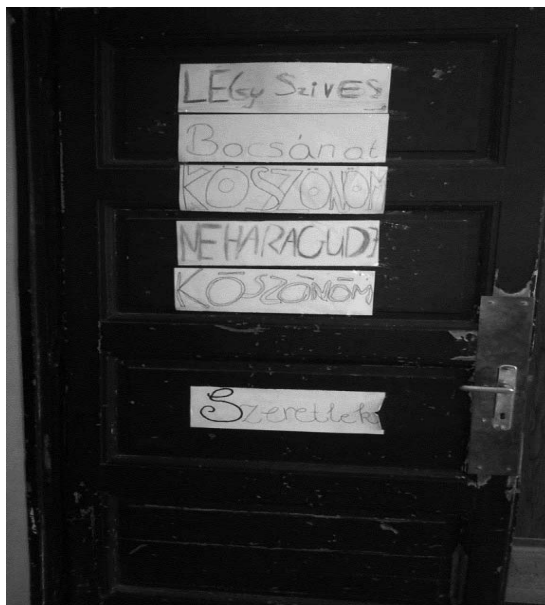 LÉGy SzivES
Bocsánat
KÖSZÖNÖM
NE HARAGUDJ
KÖSZÖNÖM
Szeretlek